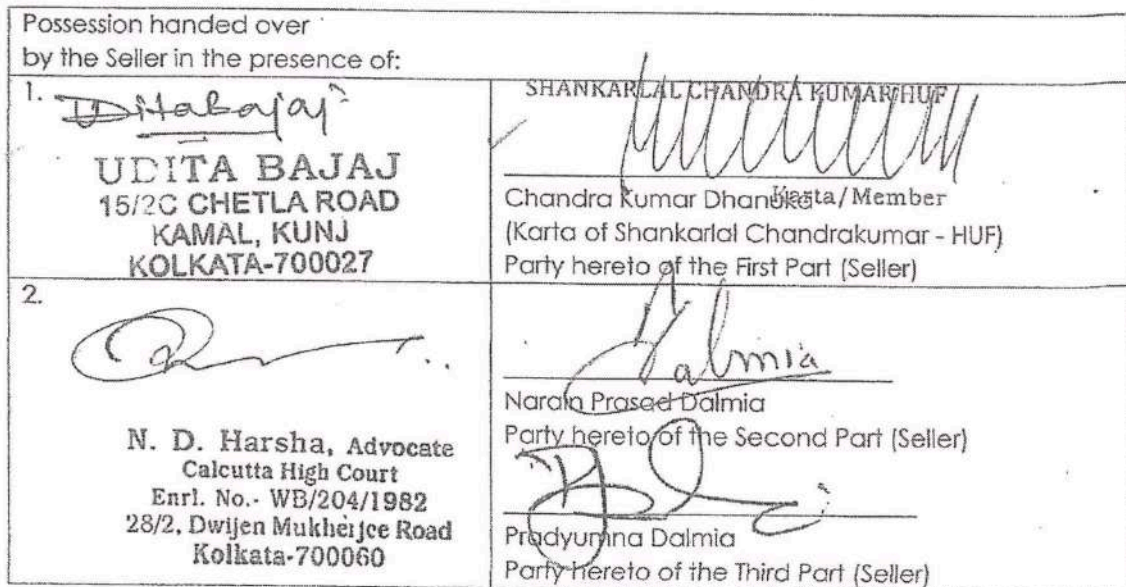 Possession handed over
by the Seller in the presence of:
1.
Udita Bajaj
UDITA BAJAJ
15/2C CHETLA ROAD
KAMAL, KUNJ
KOLKATA-700027
SHANKARLAL CHANDRA KUMAR HUF
Chandra Kumar Dhanuka
Karta/Member
(Karta of Shankarlal Chandrakumar - HUF)
Party hereto of the First Part (Seller)
2.
N. D. Harsha, Advocate
Calcutta High Court
Enrl. No.- WB/204/1982
28/2, Dwijen Mukherjee Road
Kolkata-700060
Dalmia
Narain Prasad Dalmia
Party hereto of the Second Part (Seller)
Pradyumna Dalmia
Party hereto of the Third Part (Seller)